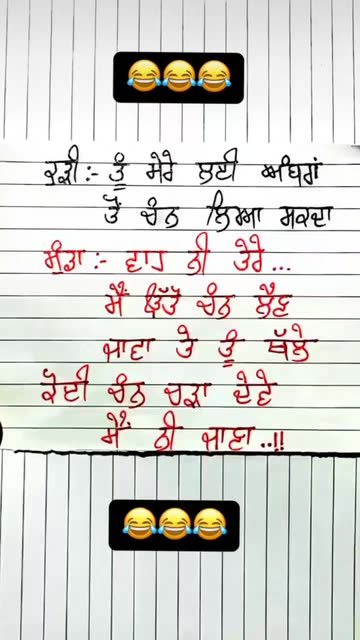 😂😂😂
ਕੁੜੀ :- ਤੂੰ ਮੇਰੇ ਲਈ ਅੰਬਰਾਂ
ਤੋਂ ਚੰਨ ਲਿਆ ਸਕਦਾ
ਮੁੰਡਾ :- ਵਾਹ ਨੀ ਤੇਰੇ...
ਮੈਂ ਉੱਤੋਂ ਚੰਨ ਲੈਣ
ਜਾਵਾ ਤੇ ਤੂੰ ਥੱਲੇ
ਕੋਈ ਚੰਨ ਚੜਾ ਦੇਵੇ
ਮੈਂ ਨੀ ਜਾਣਾ..!!
😂😂😂